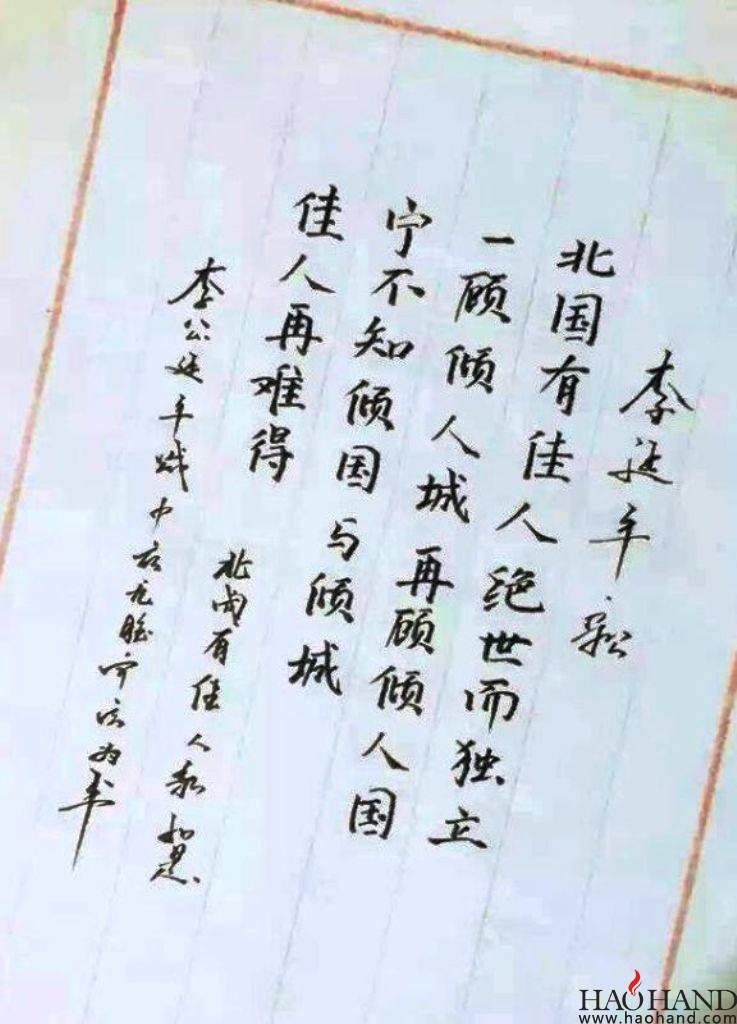 李延年歌
北国有佳人绝世而独立
一顾倾人城再顾倾人国
宁不知倾国与倾城
佳人再难得
北国有佳人
李公延年
为书
HAOHAND
www.haohand.com